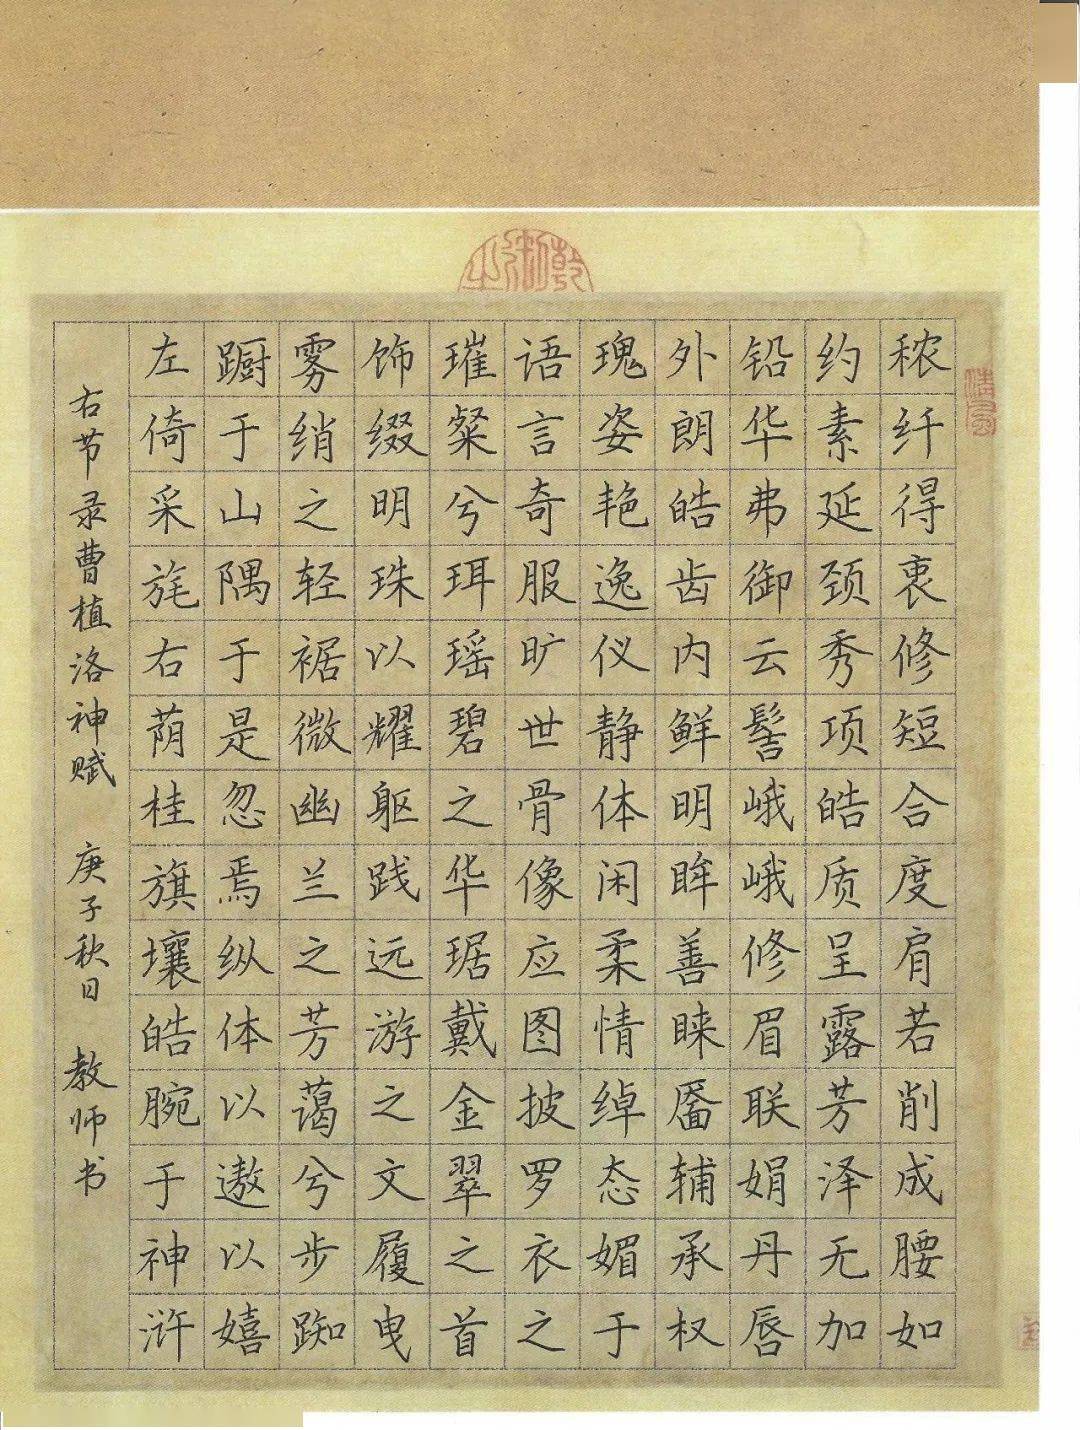 秾纤得衷修短合度肩若削成腰如
约素延颈秀项皓质呈露芳泽无加
铅华弗御云髻峨峨修眉联娟丹唇
外朗皓齿内鲜明眸善睐靥辅承权
瑰姿艳逸仪静体闲柔情绰态媚于
语言奇服旷世骨像应图披罗衣之
璀粲兮珥瑶碧之华琚戴金翠之首
饰缀明珠以耀躯践远游之文履曳
雾绡之轻裾微幽兰之芳蔼兮步踟
蹰于山隅于是忽焉纵体以遨以嬉
左倚采旄右荫桂旗壤皓腕于神浒
右节录曹植洛神赋 庚子秋日 教师书